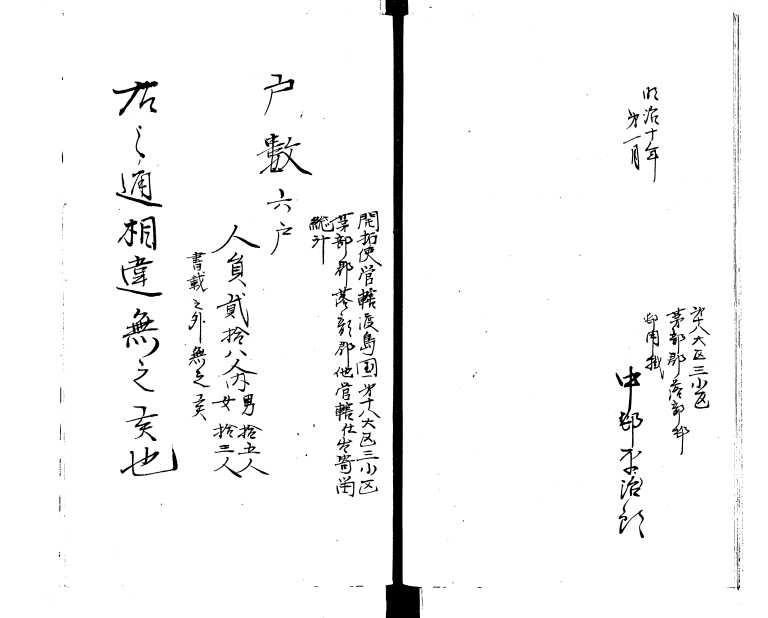 明治十年
第一月
第十八大区三小区
茅部郡落部村
御用掛
中村平治郎
開拓使管轄渡島国第十八大区三小区
茅部郡落部郡他管轄仕出寄留
総計
戸数六戸
人員貳拾八人内男拾五人
女拾三人
書載之外無之亥
右之通相違無之亥也